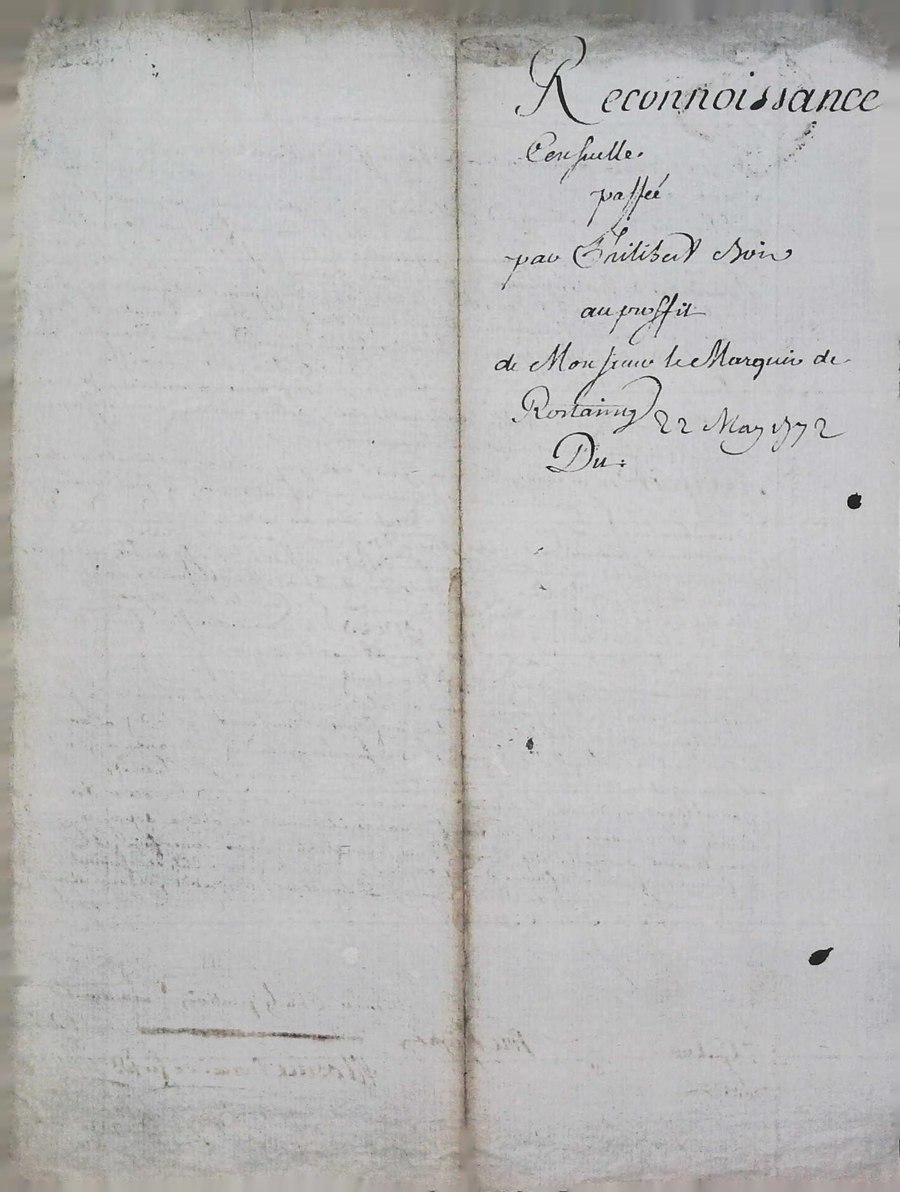 Reconnoissance
Censuelle.
passée
par Philibert Boin
au proffit
de Monsieur le Marquis de
Rostaing
22 May 1772
Du: